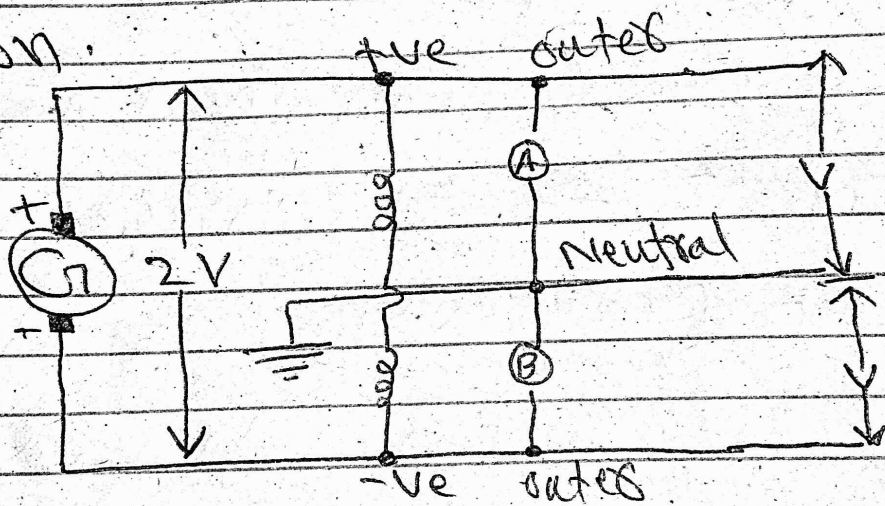 on.
+ve outer
A
V
+
G 2V
Neutral
-
B
V
-ve outer